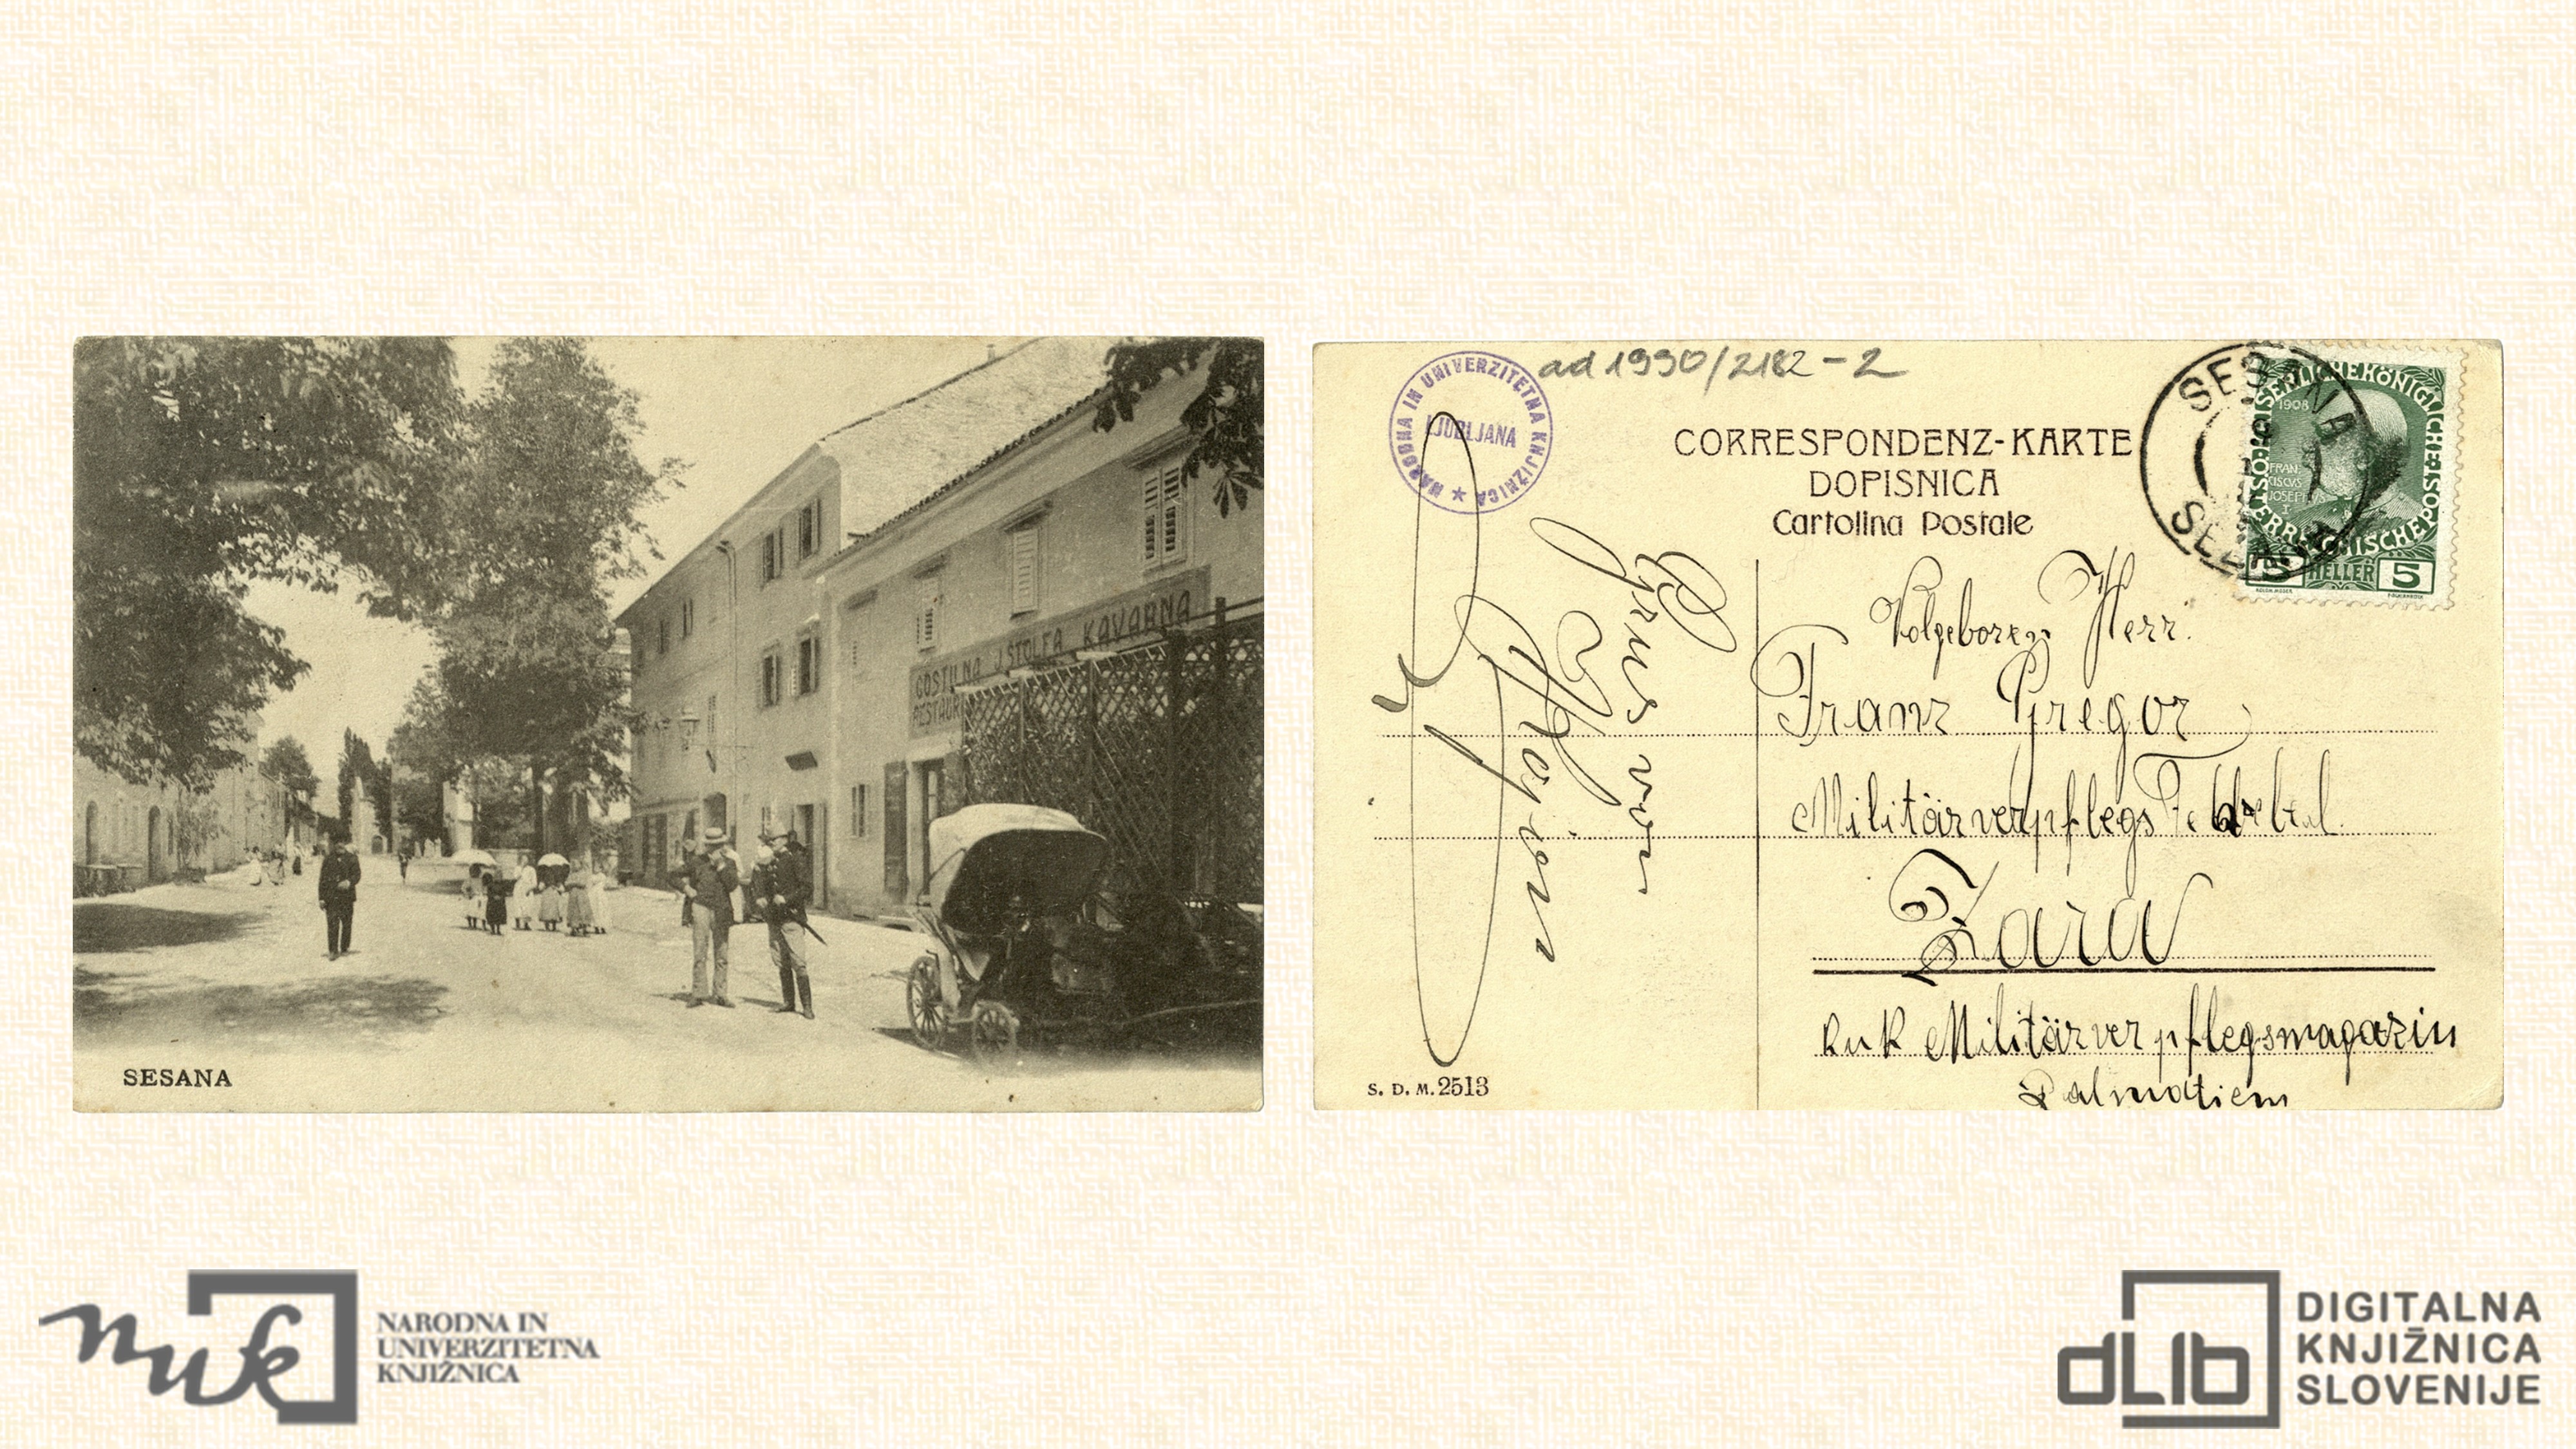 GOSTILNA J. STOLFA KAVARNA
RESTAUR
SESANA
NARODNA IN UNIVERZITETNA KNJIŽNICA
LJUBLJANA
ad 1990/2182-2
CORRESPONDENZ-KARTE
DOPISNICA
Cartolina Postale
SESANA
KAISERLICHE KÖNIGLICHE ÖSTERREICHISCHE POST
1908
FRAN
CISCVS
JOSEPHVS
I
5 HELLER 5
Volgeboren Herr.
Franz Gregor
Militärverpflegs
Zara
kuk Militärverpflegsmagazin
Dalmatiem
Grus von
S. D. M. 2513
nuk
NARODNA IN
UNIVERZITETNA
KNJIŽNICA
dLib
DIGITALNA
KNJIŽNICA
SLOVENIJE